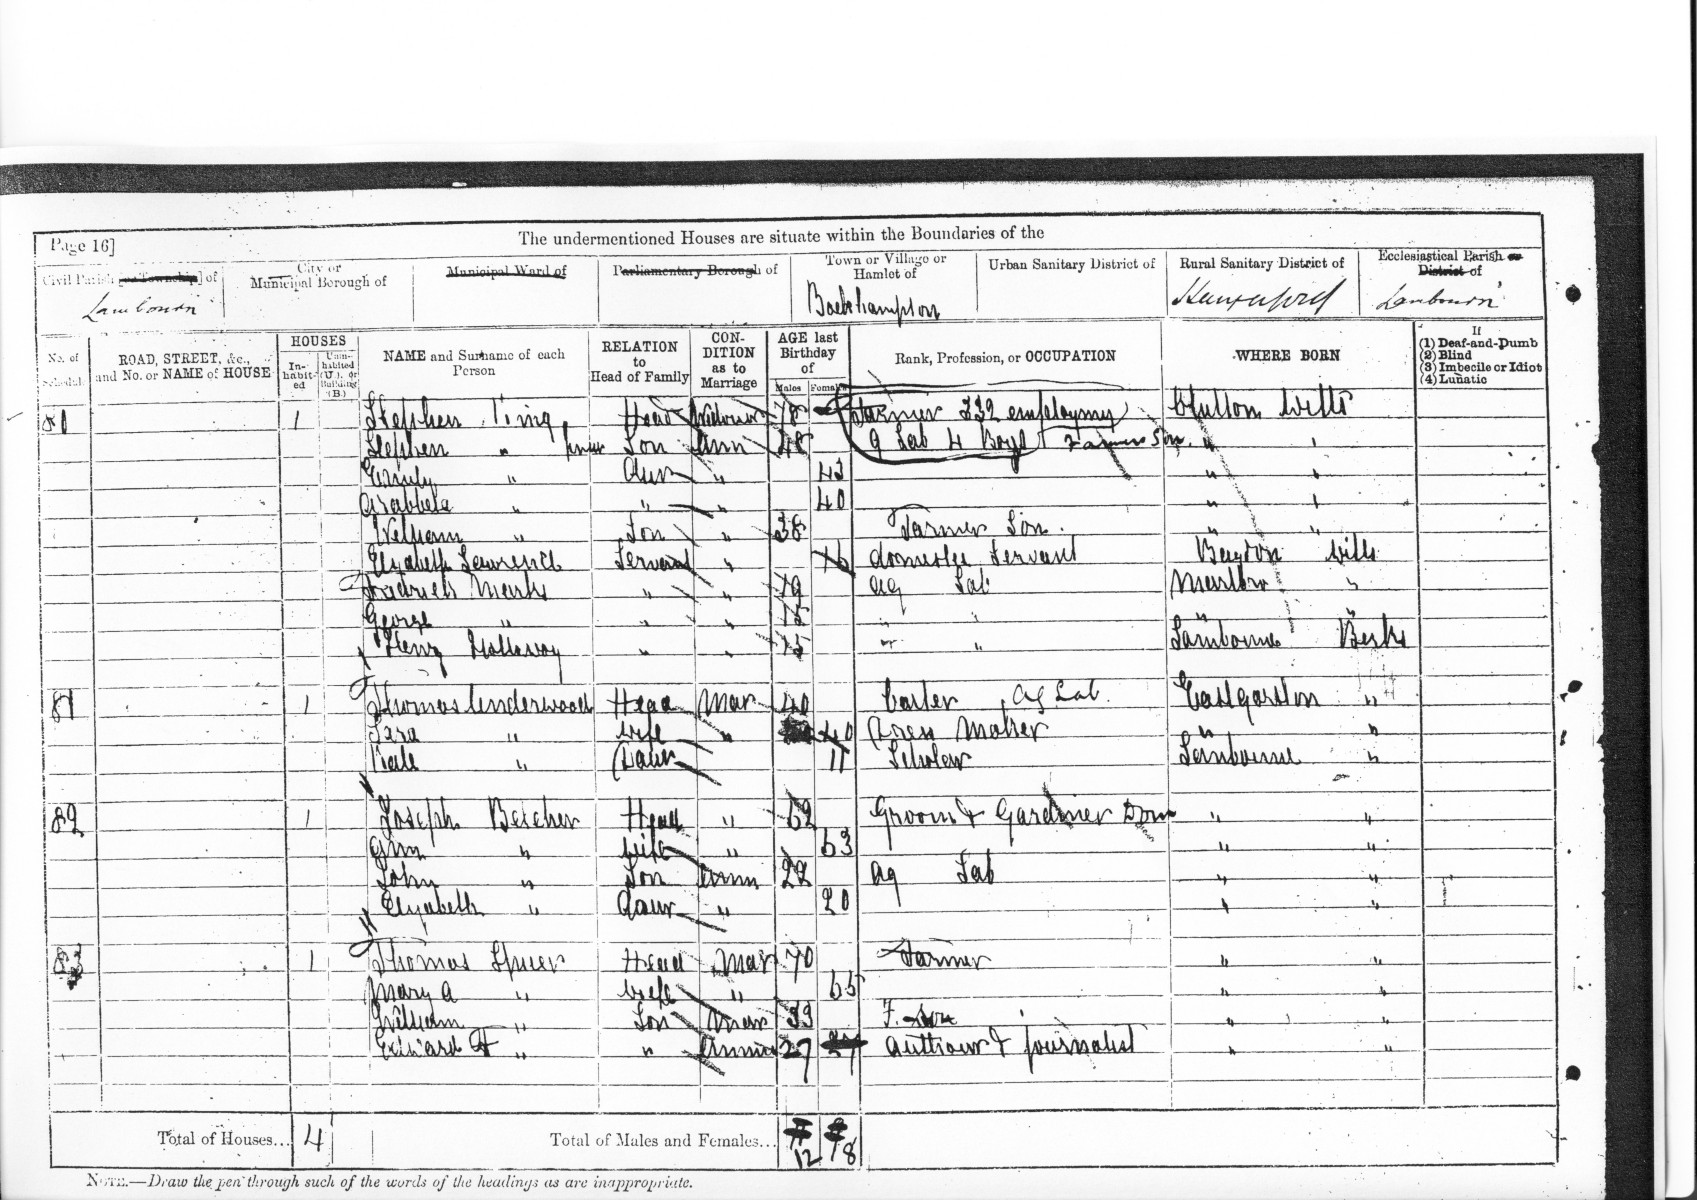 Page 16]
The undermentioned Houses are situate within the Boundaries of the
Civil Parish [or Township] of
City or Municipal Borough of
Municipal Ward of
Parliamentary Borough of
Town or Village or Hamlet of
Urban Sanitary District of
Rural Sanitary District of
Ecclesiastical Parish or District of
Lambourn
Lambourn
No. of Schedule
ROAD, STREET, &c., and No. or NAME of HOUSE
HOUSES
In-habit-ed
Unin-habited (U.), or Building (B.)
NAME and Surname of each Person
RELATION to Head of Family
CON-DITION as to Marriage
AGE last Birthday of
Males
Females
Rank, Profession, or OCCUPATION
WHERE BORN
If
(1) Deaf-and-Dumb
(2) Blind
(3) Imbecile or Idiot
(4) Lunatic
80 1 Stephen Head Widower 78 Farmer 332 employing Wilts
Stephen " Son Unm 48 9 Lab 4 Boys Farmers Son " "
Emily " Daur " 43 " "
Arabbela " " " 40 " "
William " Son " 38 Farmer Son " "
Elizabeth Lawrence Servant " 16 domestic Servant Wilts
Fredrick " " 19 ag Lab "
George " " " " " " "
Henry Holloway " " " " Lambourne Berks
81 1 Thomas Underwood Head Mar 40 Carter Ag Lab Eastgarston "
Sara " wife " 40 Dress Maker " "
Kate " Daur 11 Scholar Lambourne "
82 1 Joseph Belcher Head " 62 Groom & Gardiner Dom " "
Ann " wife " 63 " "
John " Son Unm 22 ag Lab " "
Elizabeth " daur " 20 " "
83 1 Thomas Spicer Head Mar 70 Farmer " "
Mary A " wife " 65 " "
William " Son 33 F. Son " "
Edward " " 27 authour & journalist " "
Total of Houses... 4
Total of Males and Females... 12 8
NOTE.—Draw the pen through such of the words of the headings as are inappropriate.